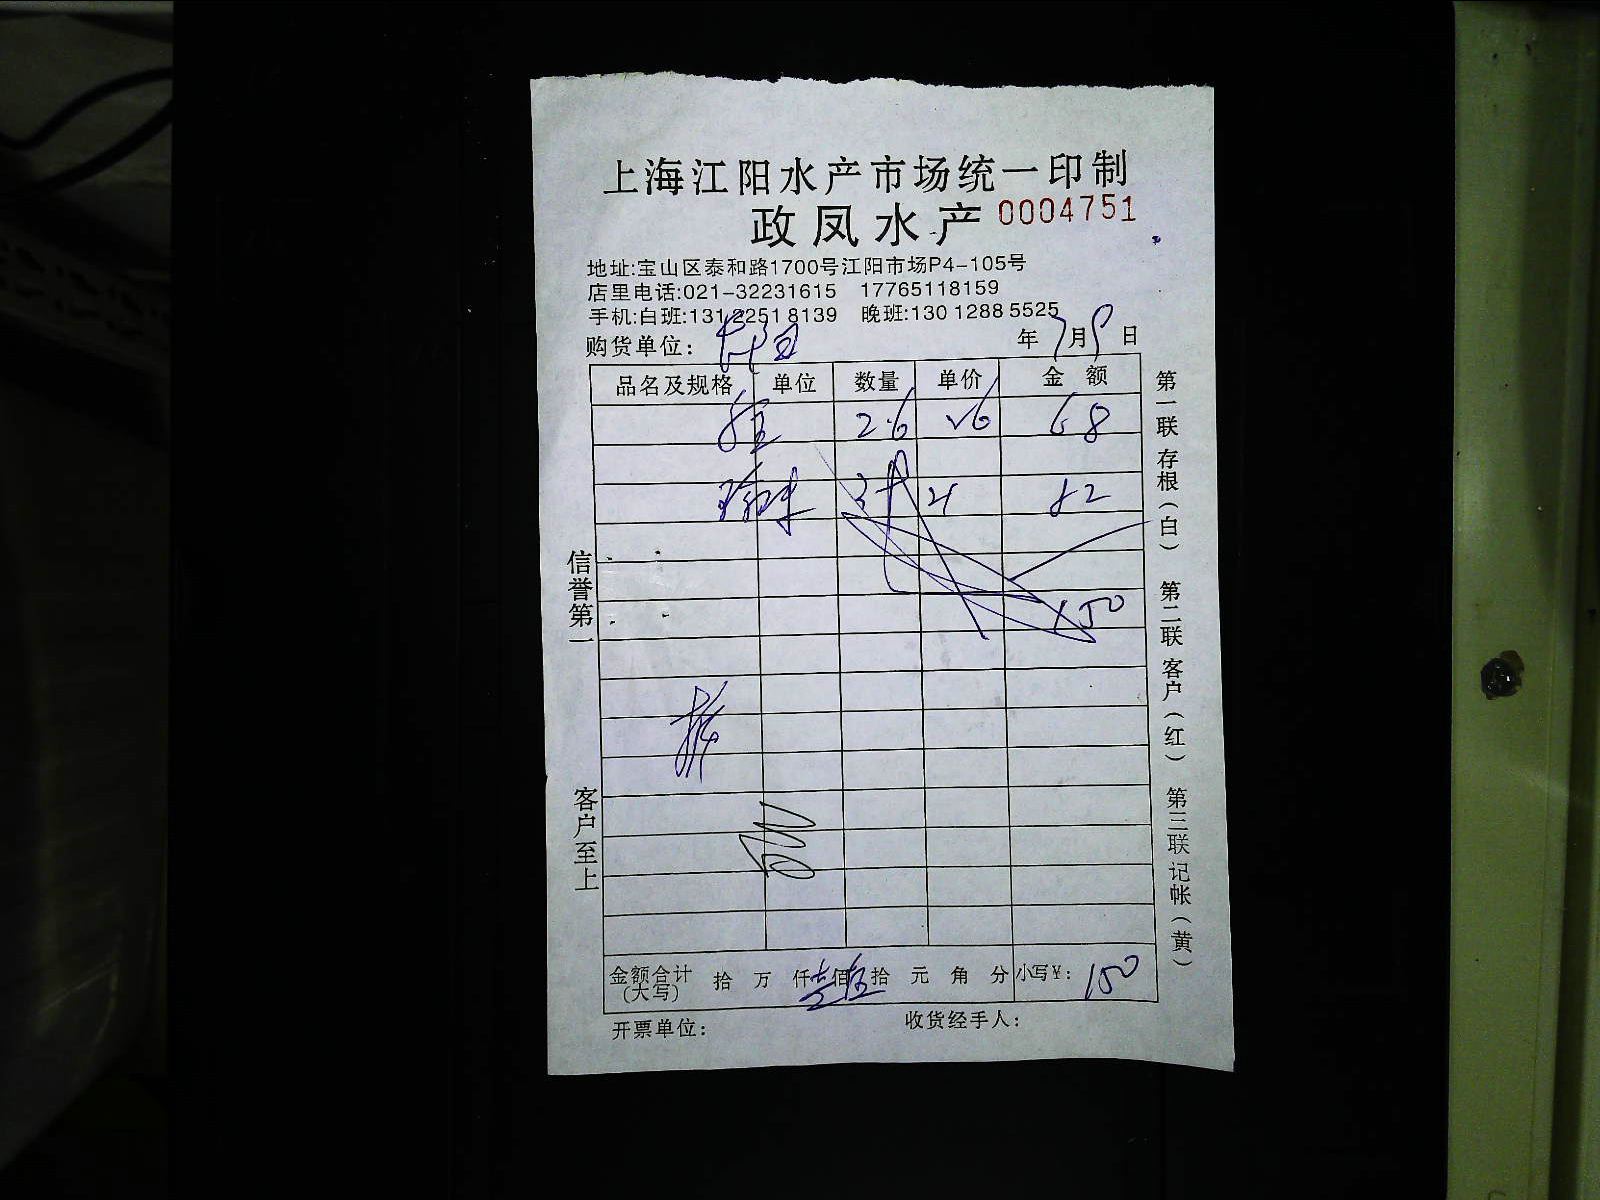 上海江阳水产市场统一印制
政凤水产 0004751
地址:宝山区泰和路1700号江阳市场P4-105号
店里电话:021-32231615 17765118159
手机:白班:131 2251 8139 晚班:130 1288 5525
购货单位: 年7月9日
品名及规格 单位 数量 单价 金额
2.6 68
82
150
金额合计(大写) 拾 万 仟壹佰伍拾 元 角 分 小写¥: 150
开票单位: 收货经手人:
信誉第一
客户至上
第一联 存根(白) 第二联 客户(红) 第三联 记帐(黄)